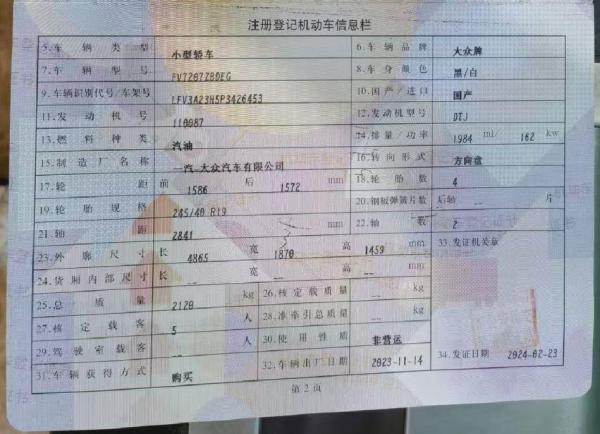 注册登记机动车信息栏
5.车辆类型 小型轿车 6.车辆品牌 大众牌
7.车辆型号 FV7207ZBDEG 8.车身颜色 黑/白
9.车辆识别代号/车架号 LFV3A23H5P3426453 10.国产/进口 国产
11.发动机号 110087 12.发动机型号 DTJ
13.燃料种类 汽油 14.排量/功率 1984 ml/ 162 kw
15.制造厂名称 一汽-大众汽车有限公司 16.转向形式 方向盘
17.轮距 前 1586 后 1572 mm 18.轮胎数 4
19.轮胎规格 245/40 R19 20.钢板弹簧片数 后轴 -- 片
21.轴距 2841 mm 22.轴数 2
23.外廓尺寸 长 4865 宽 1870 高 1459 mm 33.发证机关章
24.货厢内部尺寸 长 -- 宽 -- 高 -- mm
25.总质量 2120 kg 26.核定载质量 -- kg
27.核定载客 5 人 28.准牵引总质量 -- kg
29.驾驶室载客 -- 人 30.使用性质 非营运
31.车辆获得方式 购买 32.车辆出厂日期 2023-11-14 34.发证日期 2024-02-23
第2页